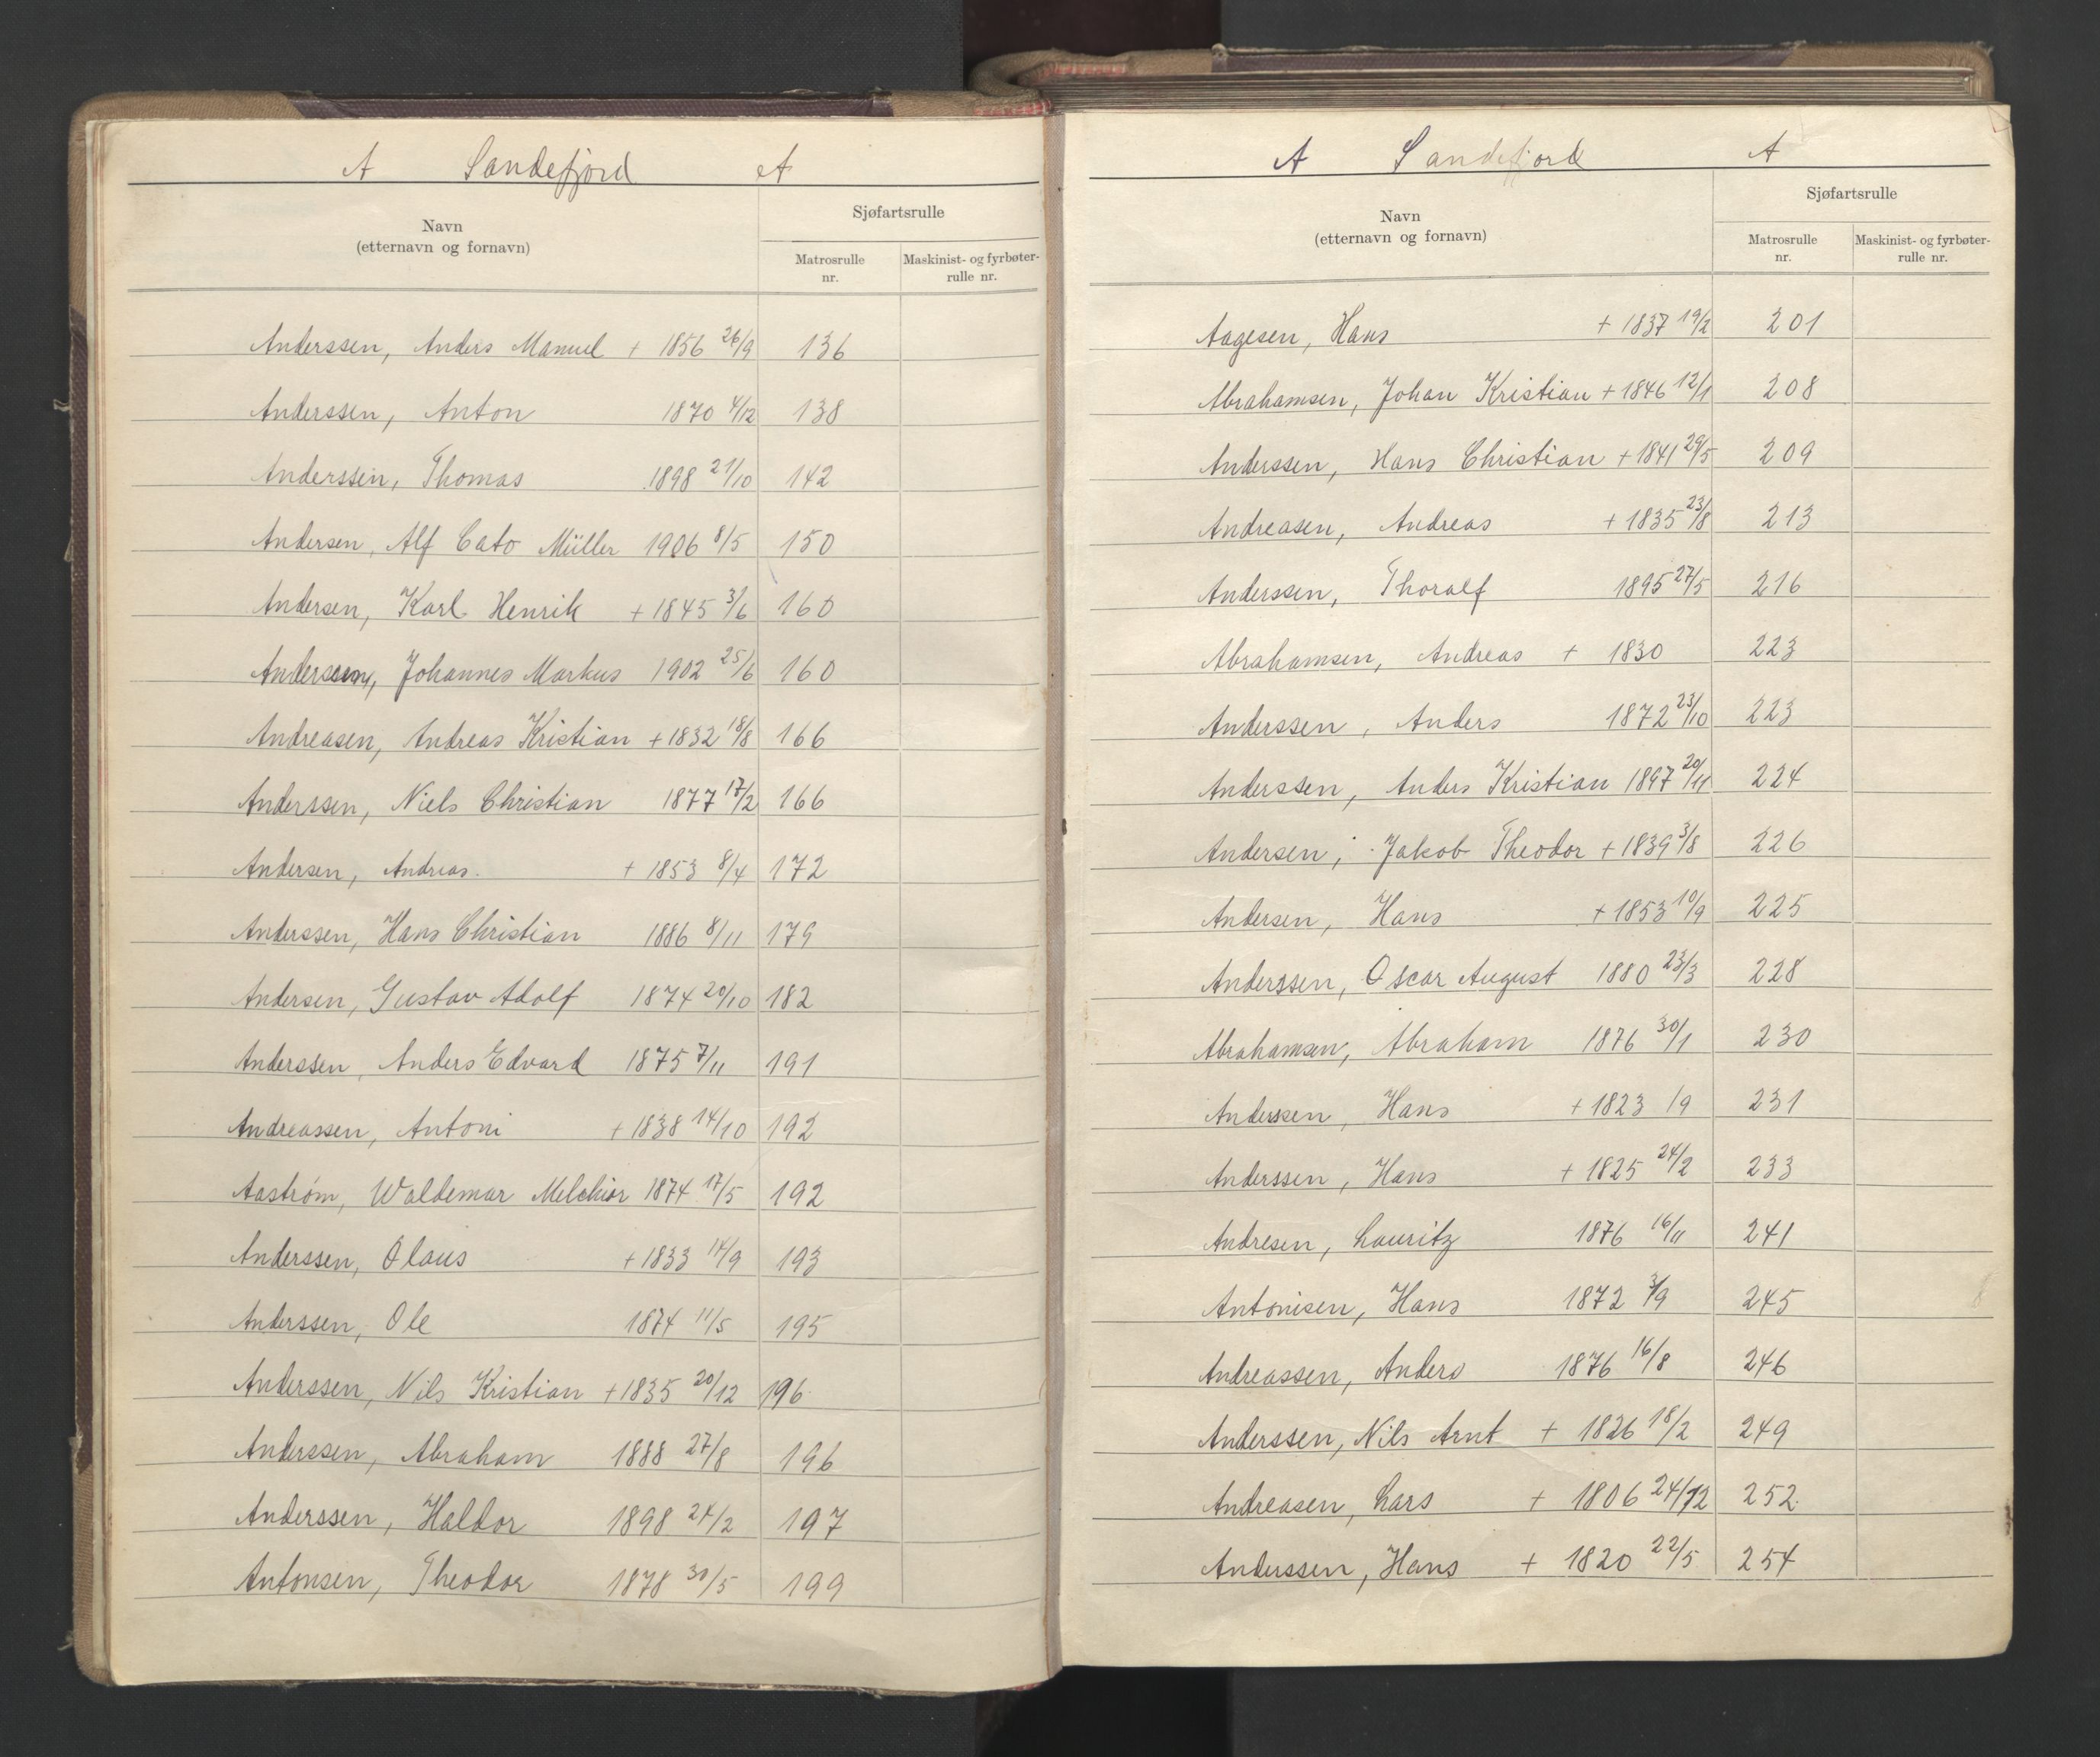 A Sandefjord A
Navn
(etternavn og fornavn)
Sjøfartsrulle
Matrosrulle nr.
Maskinist- og fyrbøter- rulle nr.
Anderssen, Anders Manuel + 1856 26/9 136
Anderssen, Anton 1870 4/12 138
Anderssen, Thomas 1898 21/10 142
Andersen, Alf Cato Müller 1906 8/5 150
Andersen, Karl Henrik + 1845 3/6 160
Anderssen, Johannes Markus 1902 25/6 160
Andreasen, Andreas Kristian + 1832 18/8 166
Anderssen, Niels Christian 1877 17/2 166
Andersen, Andreas. + 1853 8/4 172
Anderssen, Hans Christian 1886 8/11 179
Andersen, Gustav Adolf 1874 20/10 182
Anderssen, Anders Edvard 1875 7/11 191
Andreassen, Antoni + 1838 14/10 192
Aastrøm, Waldemar Melchior 1874 17/5 192
Anderssen, Olaus + 1833 14/9 193
Anderssen, Ole 1874 11/5 195
Anderssen, Nils Kristian + 1835 20/12 196
Anderssen, Abraham 1888 27/8 196
Anderssen, Haldor 1898 24/2 197
Antonsen, Theodor 1878 30/5 199
A Sandefjord A
Navn
(etternavn og fornavn)
Sjøfartsrulle
Matrosrulle nr.
Maskinist- og fyrbøter- rulle nr.
Aagesen, Hans + 1837 19/2 201
Abrahamsen, Johan Kristian + 1846 12/1 208
Anderssen, Hans Christian + 1841 29/5 209
Andreasen, Andreas + 1835 23/8 213
Anderssen, Thoralf 1895 27/5 216
Abrahamsen, Andreas + 1830 223
Anderssen, Anders 1872 23/10 223
Anderssen, Anders Kristian 1897 20/11 224
Andersen, Jakob Theodor + 1839 3/8 226
Andersen, Hans + 1853 10/9 225
Anderssen, Oscar August 1880 23/3 228
Abrahamsen, Abraham 1876 30/1 230
Anderssen, Hans + 1823 /9 231
Anderssen, Hans + 1825 24/2 233
Andresen, Lauritz 1876 16/11 241
Antonisen, Hans 1872 /9 245
Andreassen, Anders 1876 16/8 246
Anderssen, Nils Arnt + 1826 18/2 249
Andreasen, Lars + 1806 24/12 252.
Anderssen, Hans + 1820 22/5 254